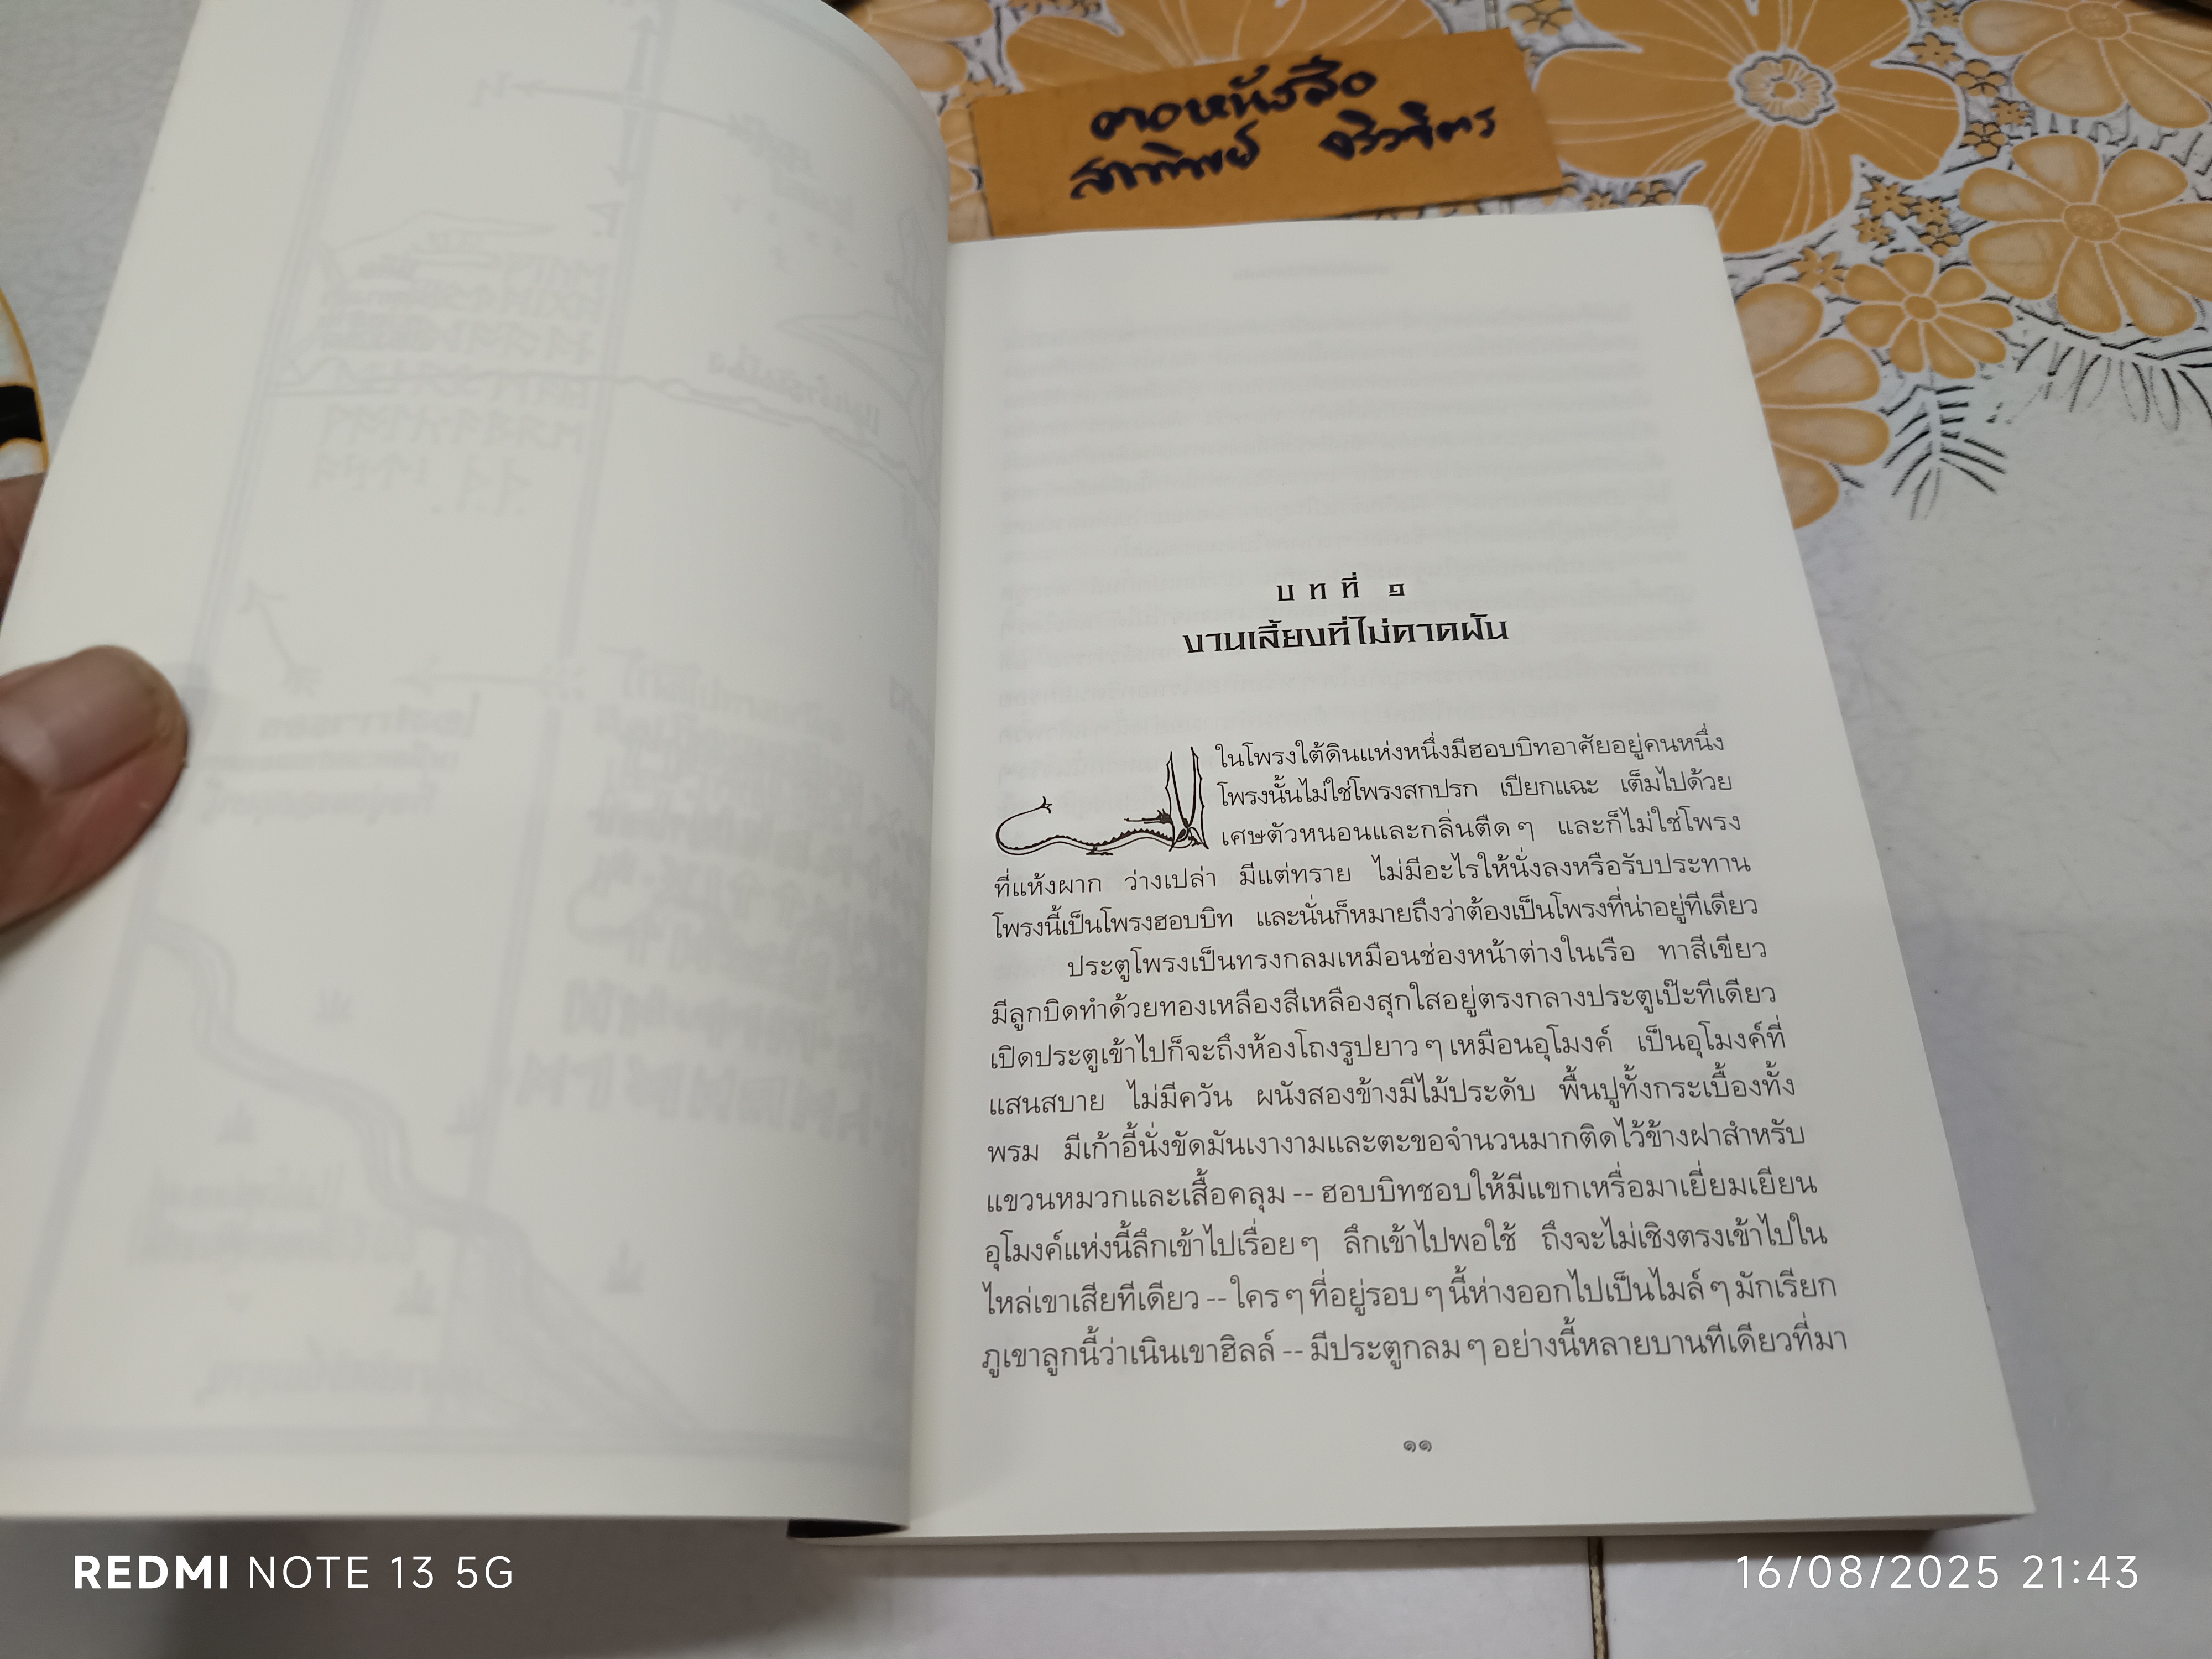 ตอหนังสือ
สาทิพย์ จริวจิตร
บทที่ ๑
งานเลี้ยงที่ไม่คาดฝัน
ในโพรงใต้ดินแห่งหนึ่งมีฮอบบิทอาศัยอยู่คนหนึ่ง
โพรงนั้นไม่ใช่โพรงสกปรก เปียกแฉะ เต็มไปด้วย
เศษตัวหนอนและกลิ่นตืด ๆ และก็ไม่ใช่โพรง
ที่แห้งผาก ว่างเปล่า มีแต่ทราย ไม่มีอะไรให้นั่งลงหรือรับประทาน
โพรงนี้เป็นโพรงฮอบบิท และนั่นก็หมายถึงว่าต้องเป็นโพรงที่น่าอยู่ทีเดียว
ประตูโพรงเป็นทรงกลมเหมือนช่องหน้าต่างในเรือ ทาสีเขียว
มีลูกบิดทำด้วยทองเหลืองสีเหลืองสุกใสอยู่ตรงกลางประตูเป๊ะทีเดียว
เปิดประตูเข้าไปก็จะถึงห้องโถงรูปยาว ๆ เหมือนอุโมงค์ เป็นอุโมงค์ที่
แสนสบาย ไม่มีควัน ผนังสองข้างมีไม้ประดับ พื้นปูทั้งกระเบื้องทั้ง
พรม มีเก้าอี้นั่งขัดมันเงางามและตะขอจำนวนมากติดไว้ข้างฝาสำหรับ
แขวนหมวกและเสื้อคลุม -- ฮอบบิทชอบให้มีแขกเหรื่อมาเยี่ยมเยียน
อุโมงค์แห่งนี้ลึกเข้าไปเรื่อย ๆ ลึกเข้าไปพอใช้ ถึงจะไม่เชิงตรงเข้าไปใน
ไหล่เขาเสียทีเดียว -- ใคร ๆ ที่อยู่รอบ ๆ นี้ห่างออกไปเป็นไมล์ ๆ มักเรียก
ภูเขาลูกนี้ว่าเนินเขาฮิลล์ -- มีประตูกลม ๆ อย่างนี้หลายบานทีเดียวที่มา
๑๑
REDMI NOTE 13 5G
16/08/2025 21:43